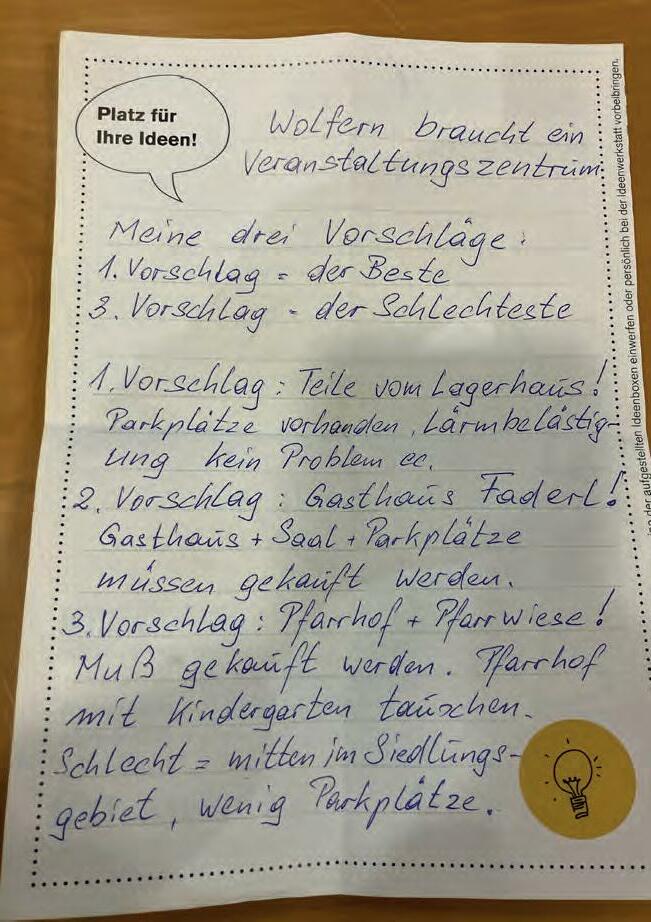 Platz für
Ihre Ideen!
Wolfern braucht ein
Veranstaltungszentrum
Meine drei Vorschläge:
1. Vorschlag = der Beste
3. Vorschlag = der Schlechteste
1. Vorschlag: Teile vom Lagerhaus!
Parkplätze vorhanden, Lärmbelästig-
ung kein Problem ec.
2. Vorschlag: Gasthaus Faderl!
Gasthaus + Saal + Parkplätze
müssen gekauft werden.
3. Vorschlag: Pfarrhof + Pfarrwiese!
Muß gekauft werden. Pfarrhof
mit Kindergarten tauschen.
Schlecht = mitten im Siedlungs-
gebiet, wenig Parkplätze.
der aufgestellten Ideenboxen einwerfen oder persönlich bei der Ideenwerkstatt vorbeibringen.